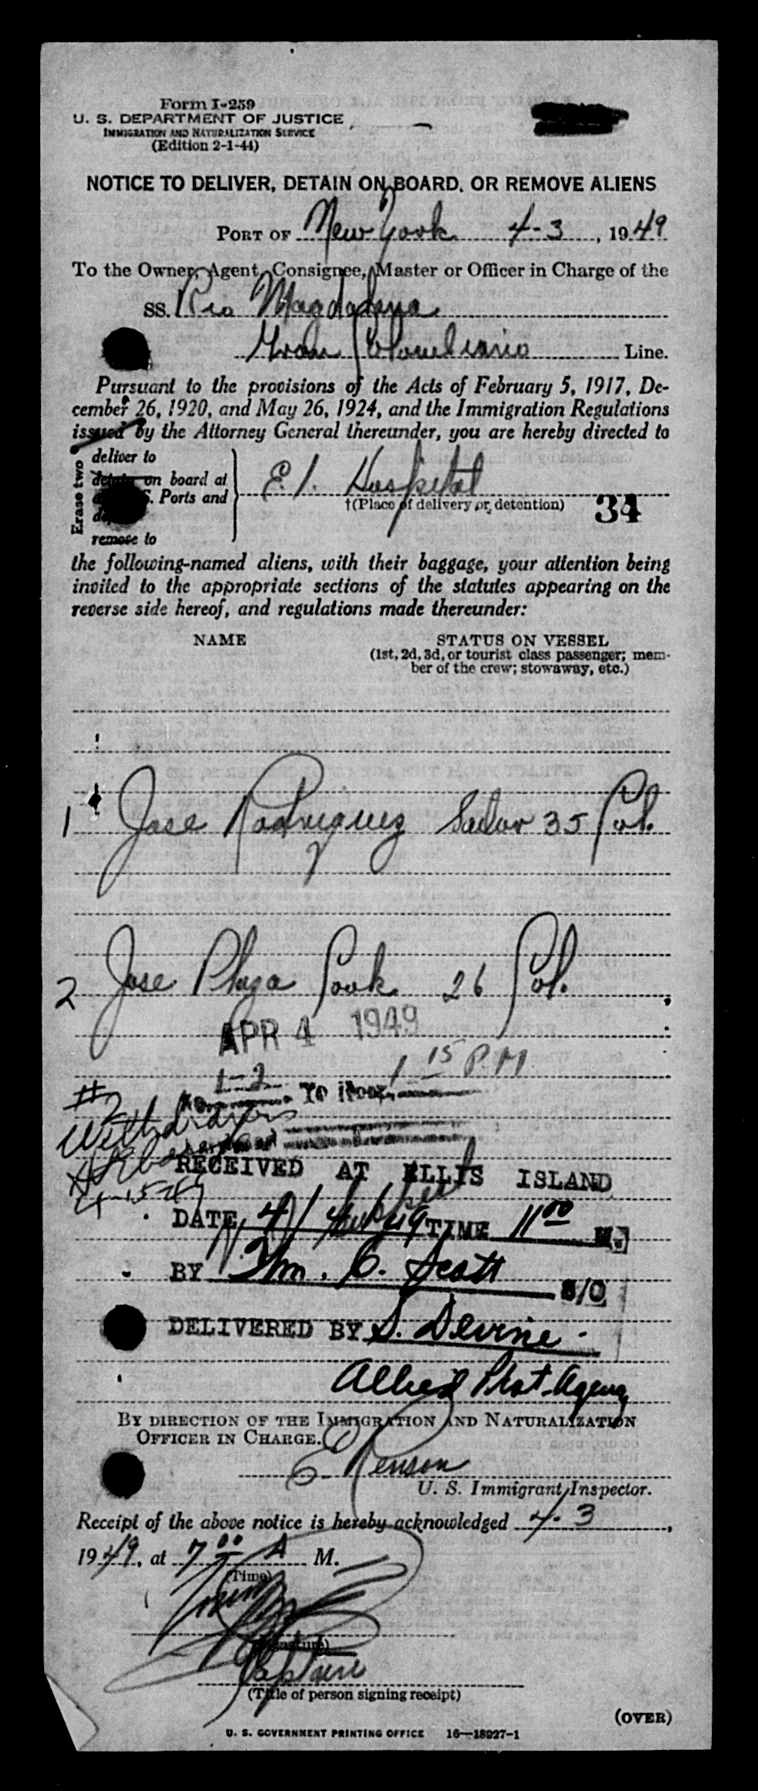 Form I-259
U. S. DEPARTMENT OF JUSTICE
IMMIGRATION AND NATURALIZATION SERVICE
(Edition 2-1-44)
NOTICE TO DELIVER, DETAIN ON BOARD, OR REMOVE ALIENS
PORT OF New York 4-3, 1949
To the Owner, Agent, Consignee, Master or Officer in Charge of the
SS. Rio Magdalena
Gran Colombiano Line.
Pursuant to the provisions of the Acts of February 5, 1917, De-
cember 26, 1920, and May 26, 1924, and the Immigration Regulations
issued by the Attorney General thereunder, you are hereby directed to
Erase two
deliver to
detain on board at
S. Ports and
remove to
E. I. Hospital
†(Place of delivery or detention) 34
the following-named aliens, with their baggage, your attention being
invited to the appropriate sections of the statutes appearing on the
reverse side hereof, and regulations made thereunder:
NAME STATUS ON VESSEL
(1st, 2d, 3d, or tourist class passenger; mem-
ber of the crew; stowaway, etc.)
1 Jose Rodriguez Sailor 35 Col.
2 Jose Plaza Cook 26 Col.
APR 4 1949
1-2 1 15 PM
No. To
#2
Withdrawn
4-15-49
RECEIVED AT ELLIS ISLAND
DATE 4/ 49 TIME 11 00 M.
BY Wm. C. Scott S/O
DELIVERED BY S. Devine
Allied Prot. Agency
BY DIRECTION OF THE IMMIGRATION AND NATURALIZATION
OFFICER IN CHARGE.
E Renson
U. S. Immigrant Inspector.
Receipt of the above notice is hereby acknowledged 4-3,
1949, at 7 00 A M.
(Time)
(Signature)
Captain
(Title of person signing receipt)
(OVER)
U. S. GOVERNMENT PRINTING OFFICE 16—18927-1